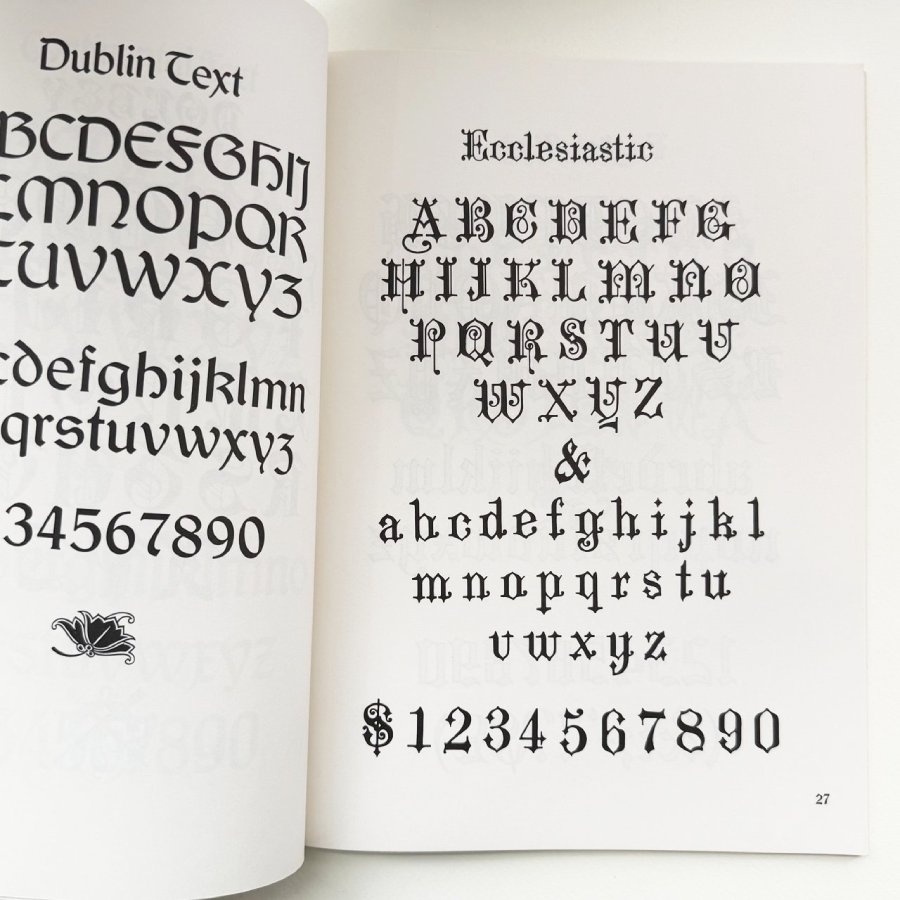 Dublin Text
BCDEFGHIJ
LMNOPQR
TUVWXYZ
cdefghijklmn
qrstuvwxyz
34567890
Ecclesiastic
A B C D E F G
H I J K L M N O
P Q R S T U V
W X Y Z
&
a b c d e f g h i j k l
m n o p q r s t u
v w x y z
$ 1 2 3 4 5 6 7 8 9 0
27